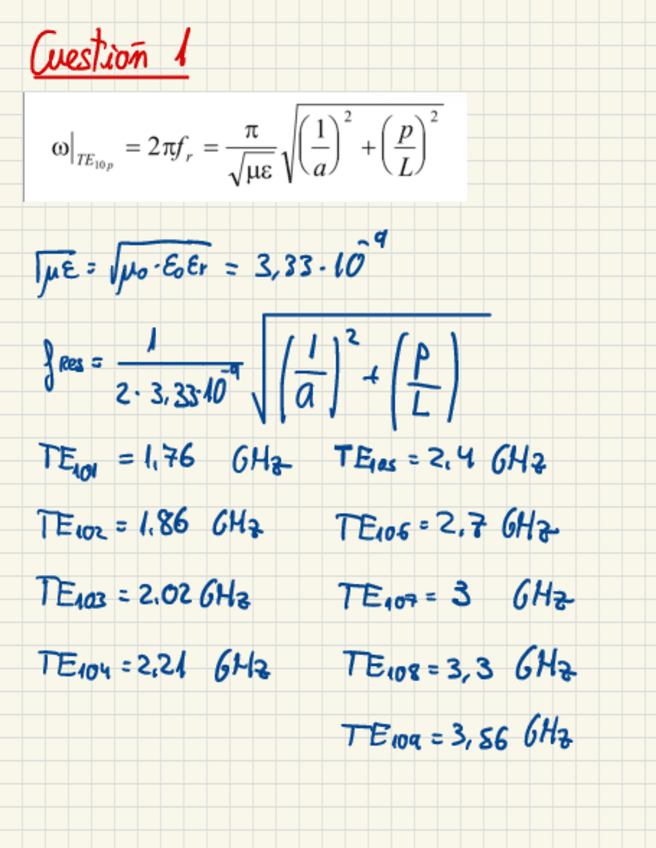 Cuestión 1
ω|TE₁₀ₚ = 2πfᵣ = π/√με √((1/a)² + (p/L)²)
√με = √μ₀·ε₀εr = 3,33·10⁻⁹
fRes = 1/(2·3,33·10⁻⁹) √((1/a)² + (P/L))
TE₁₀₁ = 1,76 GHz TE₁₀₅ = 2,4 GHz
TE₁₀₂ = 1.86 GHz TE₁₀₆ = 2,7 GHz
TE₁₀₃ = 2.02 GHz TE₁₀₇ = 3 GHz
TE₁₀₄ = 2,21 GHz TE₁₀₈ = 3,3 GHz
TE₁₀₉ = 3,56 GHz